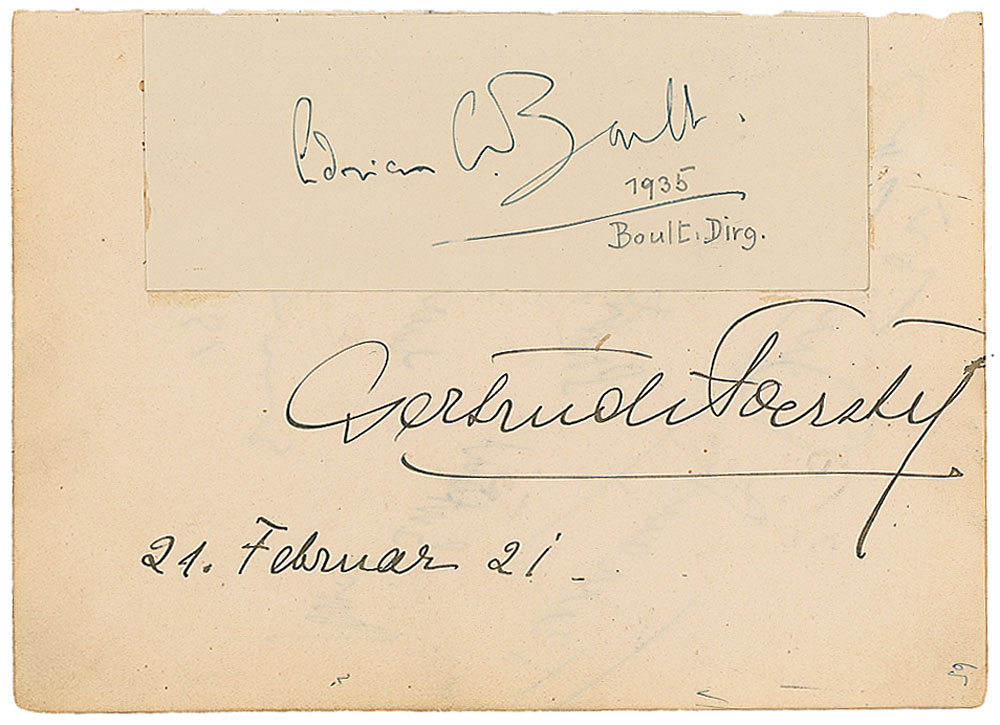 Adrian C. Boult.
1935
Boult. Dirg.
Gertrude Foerstel
21. Februar 21